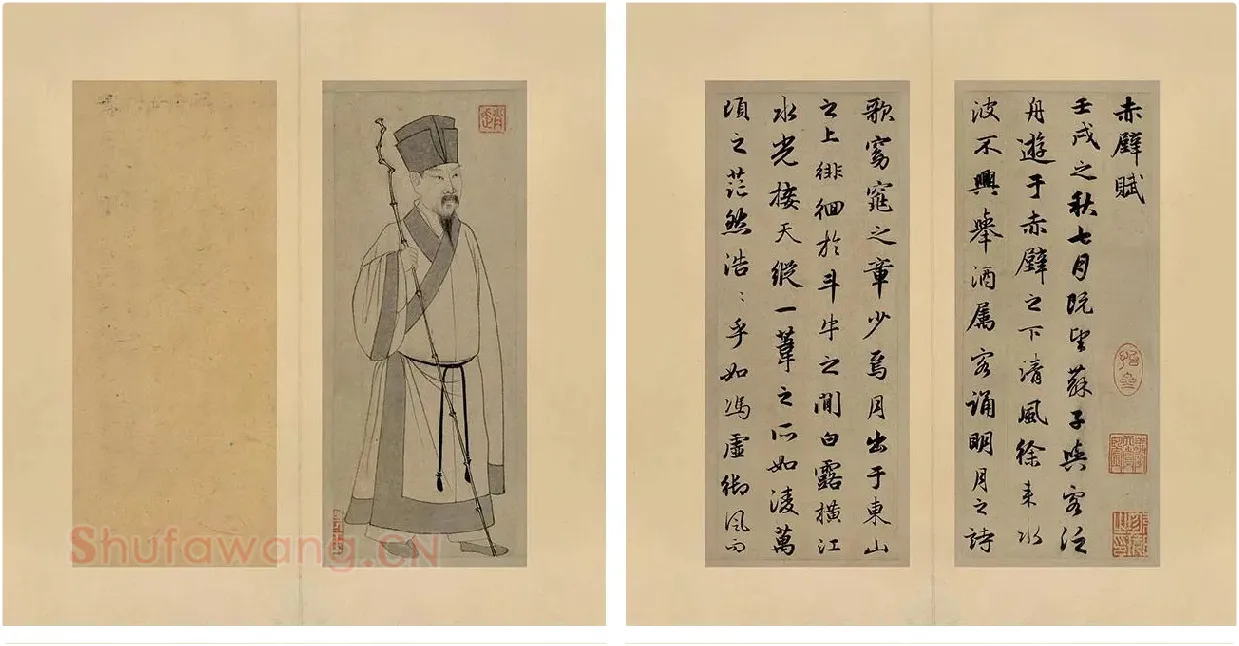 赤壁賦
壬戌之秋七月既望蘇子與客泛
舟遊于赤壁之下清風徐来水
波不興舉酒属客誦明月之詩
歌窈窕之章少焉月出于東山
之上徘徊於斗牛之間白露橫江
水光接天縱一葦之所如淩萬
頃之茫然浩〻乎如馮虛御風而
Shufawang.CN